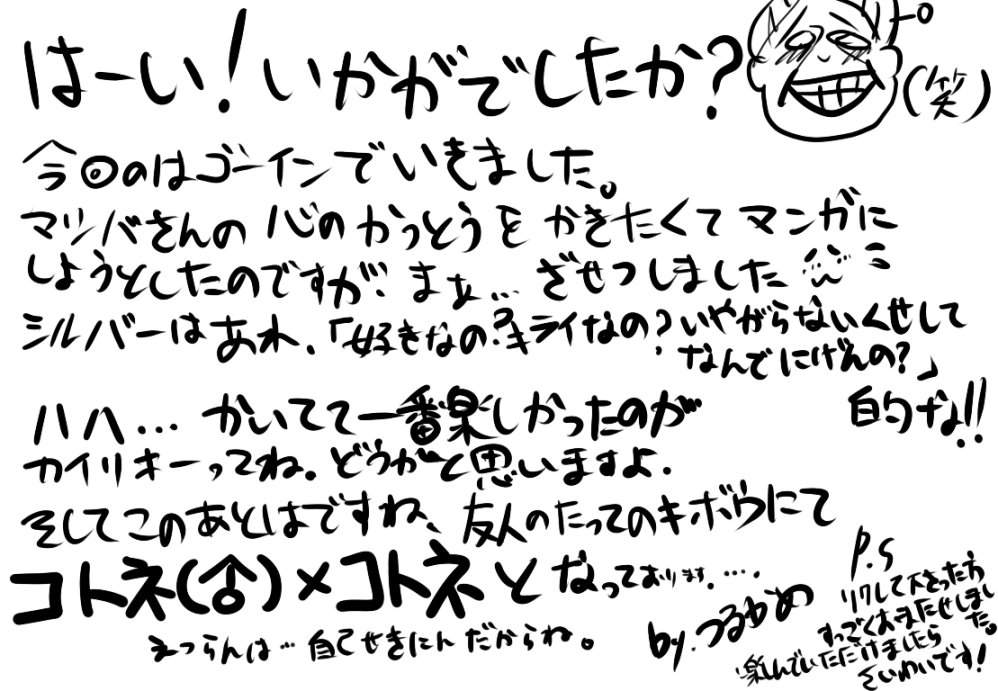 はーい!いかがでしたか?
(笑)
今回のはゴーインでいきました。
マツバさんの心のかっとうをかきたくてマンガに
しようとしたのですが、まぁ…ざせつしました
シルバーはあれ、「好きなの?キライなの?いやがらないくせして
なんでにげんの?」
的な!!
ハハ…かいてて一番楽しかったのが
カイリキーってね。どうかと思いますよ。
そしてこのあとはですね、友人のたってのキボウにて
コトネ(♂)×コトネとなっております。…
えつらんは…自己せきにんだからね。
by.つるかめ
P.S
リクして下さった方
すっごくおまたせしまし
た。
楽しんでいただけましたら
さいわいです!